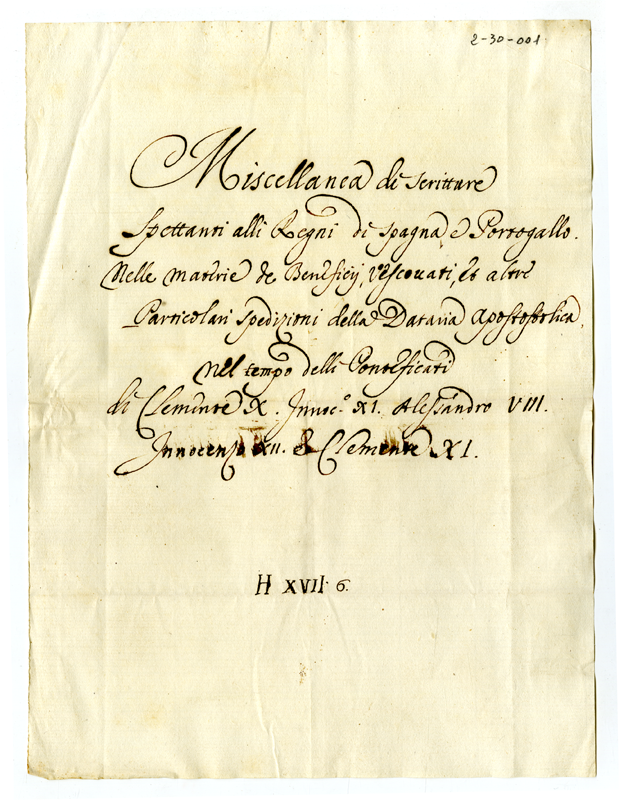 2-30-001
Miscellanea di scritture
Spettanti alli Regni di Spagna e Portogallo.
Nelle materie de Beneficij, Vescovati, et altre
Particolari spedizioni della Dataria Apostostolica,
nel tempo delli Pontificati
di Clemente X. Innoc.o XI. Alessandro VIII.
Innocenzo XII. e Clemente XI.
H XVII 6.